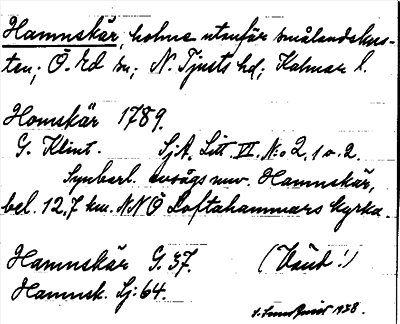 Hamnskär, holme utanför smålandskus-
ten; Ö. Ed sn; N. Tjusts hd; Kalmar l.
Homskär 1789.
G. Klint. SjA, Litt VI, No 2, 1 o. 2.
Synbarl. avsågs nuv. Hamnskär,
bel. 12,7 km. NNÖ Loftahammars kyrka.
Hamnskär G. 37. (Känd!)
Hamnsk. Sj: 64.
1938.